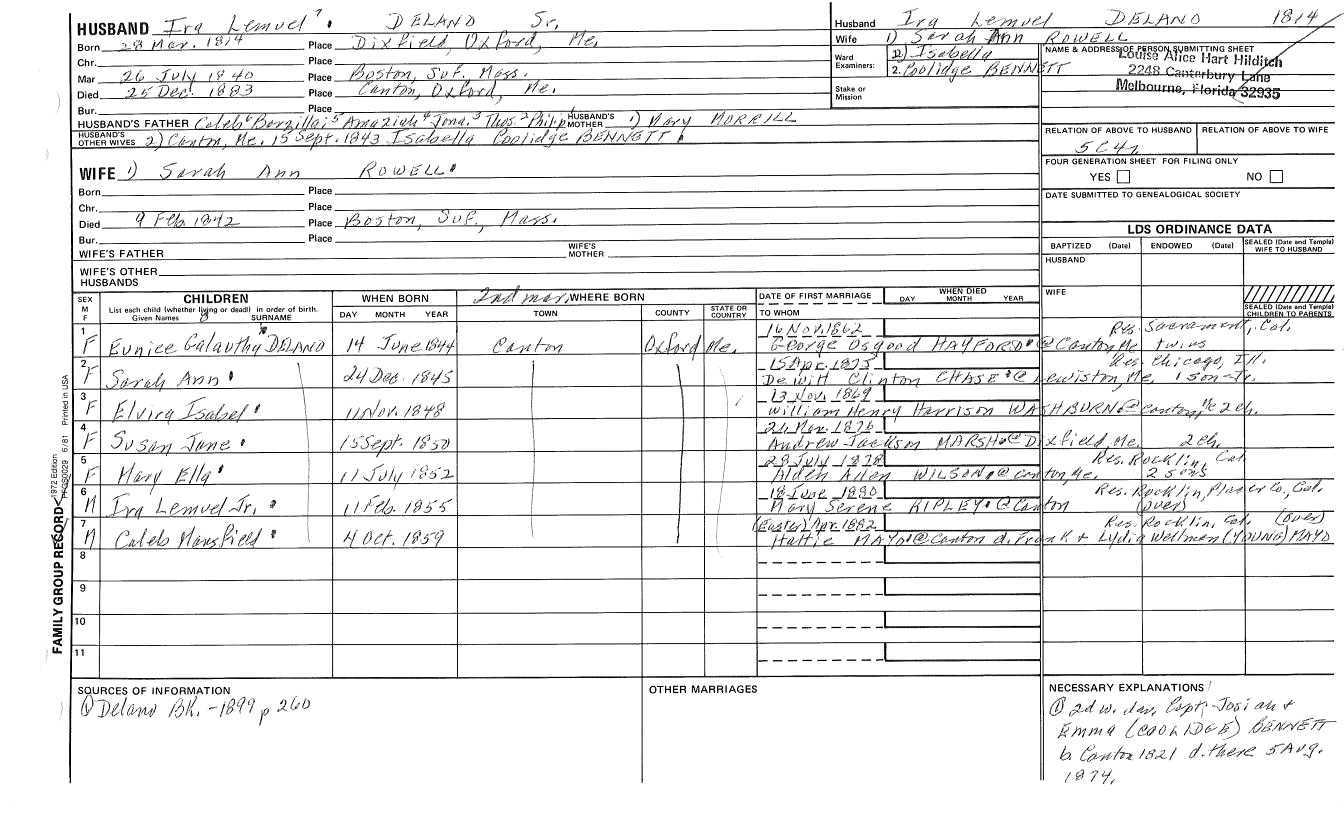 HUSBAND Ira Lemuel 7 DELANO Sr.
Born 28 Mar. 1814 Place Dixfield, Oxford, Me.
Chr. Place
Mar 26 July 1840 Place Boston, Suf. Mass.
Died 25 Dec. 1883 Place Canton, Oxford, Me.
Bur. Place
HUSBAND'S FATHER Caleb 6 Barzillai 5 Amaziah 4 Jona. 3 Thos. 2 Philip 1 HUSBAND'S MOTHER 1) Mary MORRILL
HUSBAND'S OTHER WIVES 2) Canton, Me. 15 Sept. 1843 Isabella Coolidge BENNETT
Husband Ira Lemuel DELANO 1814
Wife 1) Sarah Ann ROWELL
Ward Examiners: 1. 2) Isabella
2. Coolidge BENNETT
Stake or Mission
NAME & ADDRESS OF PERSON SUBMITTING SHEET
Louise Alice Hart Hilditch
2248 Canterbury Lane
Melbourne, Florida 32935
RELATION OF ABOVE TO HUSBAND RELATION OF ABOVE TO WIFE
5C4r
FOUR GENERATION SHEET FOR FILING ONLY
YES NO
DATE SUBMITTED TO GENEALOGICAL SOCIETY
WIFE 1) Sarah Ann ROWELL
Born Place
Chr. Place
Died 9 Feb. 1842 Place Boston, Suf., Mass.
Bur. Place
WIFE'S FATHER WIFE'S MOTHER
WIFE'S OTHER HUSBANDS
LDS ORDINANCE DATA
BAPTIZED (Date) ENDOWED (Date) SEALED (Date and Temple) WIFE TO HUSBAND
HUSBAND
WIFE
SEALED (Date and Temple) CHILDREN TO PARENTS
SEX M F CHILDREN
List each child (whether living or dead) in order of birth.
Given Names SURNAME
WHEN BORN
DAY MONTH YEAR
2nd mar. WHERE BORN
TOWN COUNTY STATE OR COUNTRY
DATE OF FIRST MARRIAGE
TO WHOM
WHEN DIED
DAY MONTH YEAR
1 16 Nov. 1862 Res. Sacrament, Cal.
F Eunice Galautha DELANO 14 June 1844 Canton Oxford Me. George Osgood HAYFORD @ Canton Me twins
2 15 Apr. 1873 Res. Chicago, Ill.
F Sarah Ann 24 Dec. 1845 Dewitt Clinton CHASE @ Lewiston, Me. 1 son-Jr.
3 13 Nov. 1869
F Elvira Isabel 11 Nov. 1848 William Henry Harrison WASHBURN @ Canton, Me 2 ch.
4 21 Mar. 1876
F Susan Jane 15 Sept. 1850 Andrew Jackson MARSH @ Dixfield, Me. 2 ch.
5 28 July 1878 Res. Rocklin, Cal
F Mary Ella 11 July 1852 Alden Allen WILSON @ Canton, Me. 2 sons
6 18 June 1880 Res. Rocklin, Placer Co., Cal.
M Ira Lemuel Jr. 11 Feb. 1855 Mary Serene RIPLEY @ Canton (over)
7 (Easter) Apr. 1882 Res. Rocklin, Cal. (over)
M Caleb Mansfield 4 Oct. 1859 Hattie MAYO @ Canton d. Frank & Lydia Wellman (YOUNG) MAYO
8
9
10
11
FAMILY GROUP RECORD
1972 Edition PFGS0029 6/81 Printed in USA
SOURCES OF INFORMATION
① Delano Bk. - 1899 p 260
OTHER MARRIAGES
NECESSARY EXPLANATIONS
① 2d w. dau. Capt. Josiah &
Emma (COOLIDGE) BENNETT
b. Canton 1821 d. there 5 Aug.
1874.